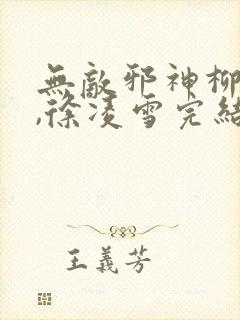 無敵邪神柳
,徐凌雪完結
王義芳